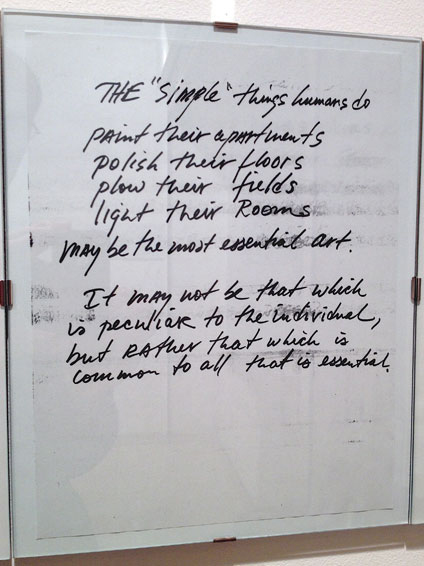 THE "simple" things humans do
paint their apartments
polish their floors
plow their fields
light their Rooms
may be the most essential art.
It may not be that which
is peculiar to the individual,
but RAther that which is
common to all that is essential.